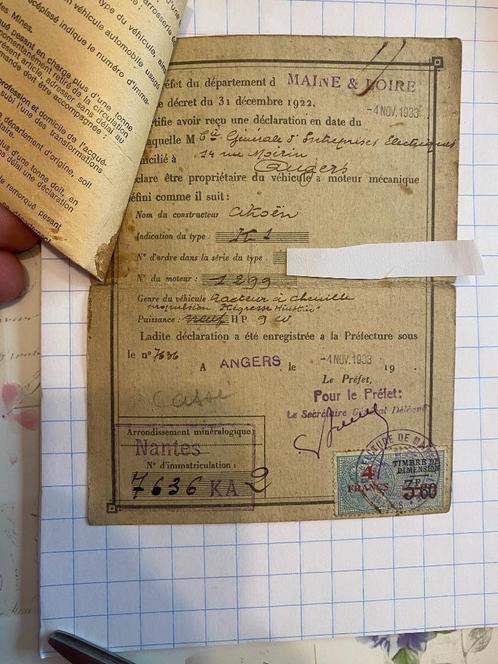 carrosserie
type du véhicule,
véhicule automobile usagé
récépissé indique le numéro d'imma-
Mines.
pesant en charge plus d'une tonne
momentanément retiré de la circulation
présent article, adresser sans délai au
demande doit être accompagnée :
subi l'une des transformations
profession et domicile de l'acqué-
département d'origine, soit
plus d'une tonne doit, en
délai une déclaration
remorque pesant
réfet du département d MAINE & LOIRE
e décret du 31 décembre 1922.
-4 NOV. 1933
tifie avoir reçu une déclaration en date du
aquelle M Cie Générale d'Entreprises Electriques
micilié à 14 rue
Angers
clare être propriétaire du véhicule à moteur mécanique
défini comme il suit :
Nom du constructeur Citroën
Indication du type
N° d'ordre dans la série du type
N° du moteur : 1299
Genre du véhicule Tracteur à chenille
propulsion Kégresse Hinstin
Puissance : HP 9 cv
Ladite déclaration a été enregistrée à la Préfecture sous
le n° 7636
A ANGERS, le -4 NOV. 1933 19
Le Préfet,
Pour le Préfet:
Le Secrétaire Général Délégué
Cassé
Arrondissement minéralogique
Nantes
N° d'immatriculation :
7636 KA 2
PREFECTURE DE MA
4
FRANCS
TIMBRE DE
DIMENSION
3.60